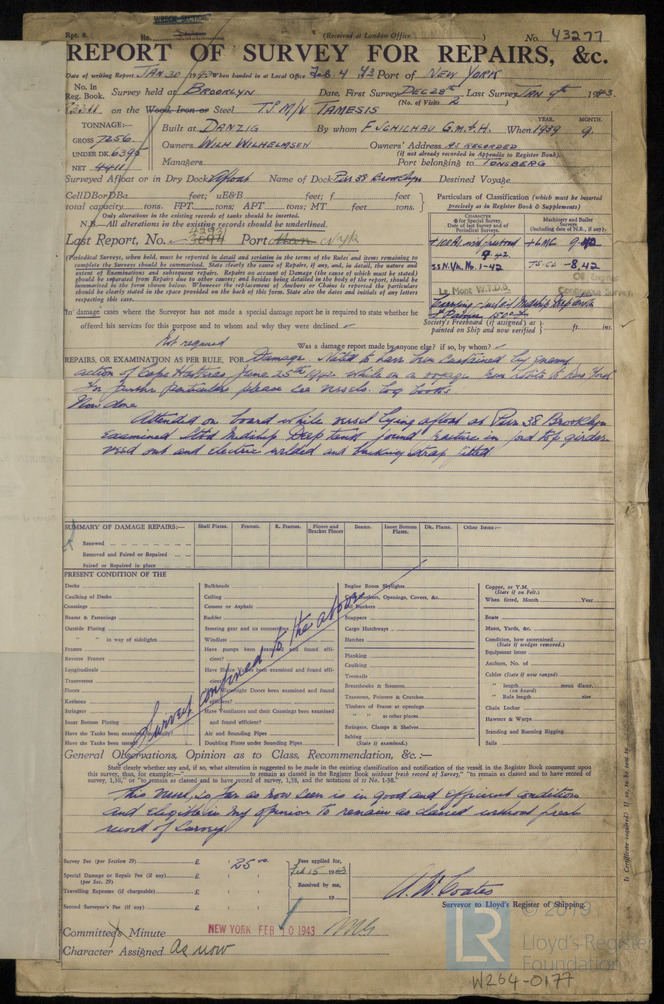 Rpt. 8. No. (Received at London Office ) No. 43277
REPORT OF SURVEY FOR REPAIRS, &c.
Date of writing Report JAN 30 1943 When handed in at Local Office Feb 4 43 Port of NEW YORK
No. in Reg. Book. Survey held at BROOKLYN Date, First Survey DEC 28th Last Survey JAN 9th 1943.
(No. of Visits 2 )
on the Wood, Iron or Steel T.S M/V TAMESIS
TONNAGE:— Built at DANZIG By whom F. SCHICHAU G.M.B.H. When YEAR. 1939 MONTH. 9.
GROSS 7256
Owners WILH WILHELMSEN Owners' Address AS RECORDED
UNDER DK. 6395 (if not already recorded in Appendix to Register Book).
NET 4411 Managers Port belonging to TONSBERG
Surveyed Afloat or in Dry Dock Afloat Name of Dock Pier 38 Brooklyn Destined Voyage
Cell D B or D Ba feet; uE&B feet; f feet
total capacity tons. FPT tons; APT tons; MT feet tons.
Only alterations in the existing records of tanks should be inserted.
N.B.—All alterations in the existing records should be underlined.
Particulars of Classification (which must be inserted precisely as in Register Book & Supplements)
CHARACTER
for Special Survey.
Date of last Survey and of Periodical Surveys.
Machinery and Boiler Surveys
(including date of N.B., if any).
Last Report, No. Port NYK
+100A1
+LMC 9
9.42
S.S. N.Yk. No. 1-42
8,42
Le Mont W.T.D.B.
(Periodical Surveys, when held, must be reported in detail and seriatim in the terms of the Rules and items remaining to complete the Surveys should be summarised. State clearly the cause of Repairs, if any, and, in detail, the nature and extent of Examinations and subsequent repairs. Repairs on account of Damage (the cause of which must be stated) should be separated from Repairs due to other causes; and besides being detailed in the body of the report, should be summarised in the form shewn below. Whenever the replacement of Anchors or Chains is reported the particulars should be clearly stated in the space provided on the back of this form. State also the dates and initials of any letters respecting this case.
Society's Freeboard (if assigned) as painted on Ship and now verified ft. ins.
In damage cases where the Surveyor has not made a special damage report he is required to state whether he
offered his services for this purpose and to whom and why they were declined
Not required Was a damage report made by anyone else? if so, by whom?
REPAIRS, OR EXAMINATION AS PER RULE, FOR Damage. Stated to have been sustained by enemy
action off Cape Hatteras June 25th 1942 while on a voyage from to New York
For further particulars please see vessels log books
Now done
Attended on board while vessel lying afloat at Pier 38 Brooklyn
examined Stbd Midship Deep tank found fracture in fwd top girder
veed out and electric welded and backing strap fitted
SUMMARY OF DAMAGE REPAIRS:— Shell Plates. Frames. R. Frames. Floors and Bracket Floors Beams. Inner Bottom Plates. Dk. Plates. Other Items:—
Renewed
Removed and Faired or Repaired
Faired or Repaired in place
PRESENT CONDITION OF THE
Decks
Caulking of Decks
Coamings
Beams & Fastenings
Outside Plating
" " in way of sidelights
Frames
Reverse Frames
Longitudinals
Transverses
Floors
Keelsons
Stringers
Inner Bottom Plating
Have the Tanks been examined internally?
Have the Tanks been tested?
Bulkheads
Ceiling
Cement or Asphalt
Rudder
Steering gear and its connections
Windlass
Have pumps been examined and found efficient?
Have Sluices been examined and found efficient?
Have Watertight Doors been examined and found efficient?
Have Ventilators and their Coamings been examined and found efficient?
Air and Sounding Pipes
Doubling Plates under Sounding Pipes
Engine Room Skylights
Bunkers, Openings, Covers, &c.
Oil Bunkers
Scuppers
Cargo Hatchways
Hatches
Planking
Caulking
Treenails
Breasthooks & Stemson
Transoms, Pointers & Crutches
Timbers of Frame at openings
" " at other places
Stringers, Clamps & Shelves
Salting
(State if examined.)
Copper, or Y.M.
(State if on Felt.)
When fitted, Month Year
Boats
Masts, Yards, &c.
Condition, how ascertained
(State if wedges removed.)
Equipment letter
Anchors, No. of
Cables (State if now ranged)
" length mean diamr.
(on board)
" Rule length size
Chain Locker
Hawsers & Warps
Standing and Running Rigging
Sails
Survey confined to the above
General Observations, Opinion as to Class, Recommendation, &c.:—
State clearly whether any and, if so, what alteration is suggested to be made in the existing classification and notification of the vessel in the Register Book consequent upon this survey, thus, for example:—" to remain as classed in the Register Book without fresh record of Survey," "to remain as classed and to have record of survey, 1,30," or "to remain as classed and to have record of survey, 1,38, and the notations of ss No. 1-38."
This vessel, so far as now seen is in good and efficient condition
and eligible in my opinion to remain as classed without fresh
record of Survey
Survey Fee (per Section 29) £ 25.00.
Special Damage or Repair Fee (if any) £
(per Sec. 29)
Travelling Expenses (if chargeable) £
Second Surveyor's Fee (if any) £
Fees applied for,
Feb 15 1943
Received by me,
19
A. W. Coates
Surveyor to Lloyd's Register of Shipping.
Committee's Minute NEW YORK FEB 10 1943
Character Assigned As now
Is Certificate required? If so, to be sent to
LR © 2019
Lloyd's Register
Foundation
W264-0177